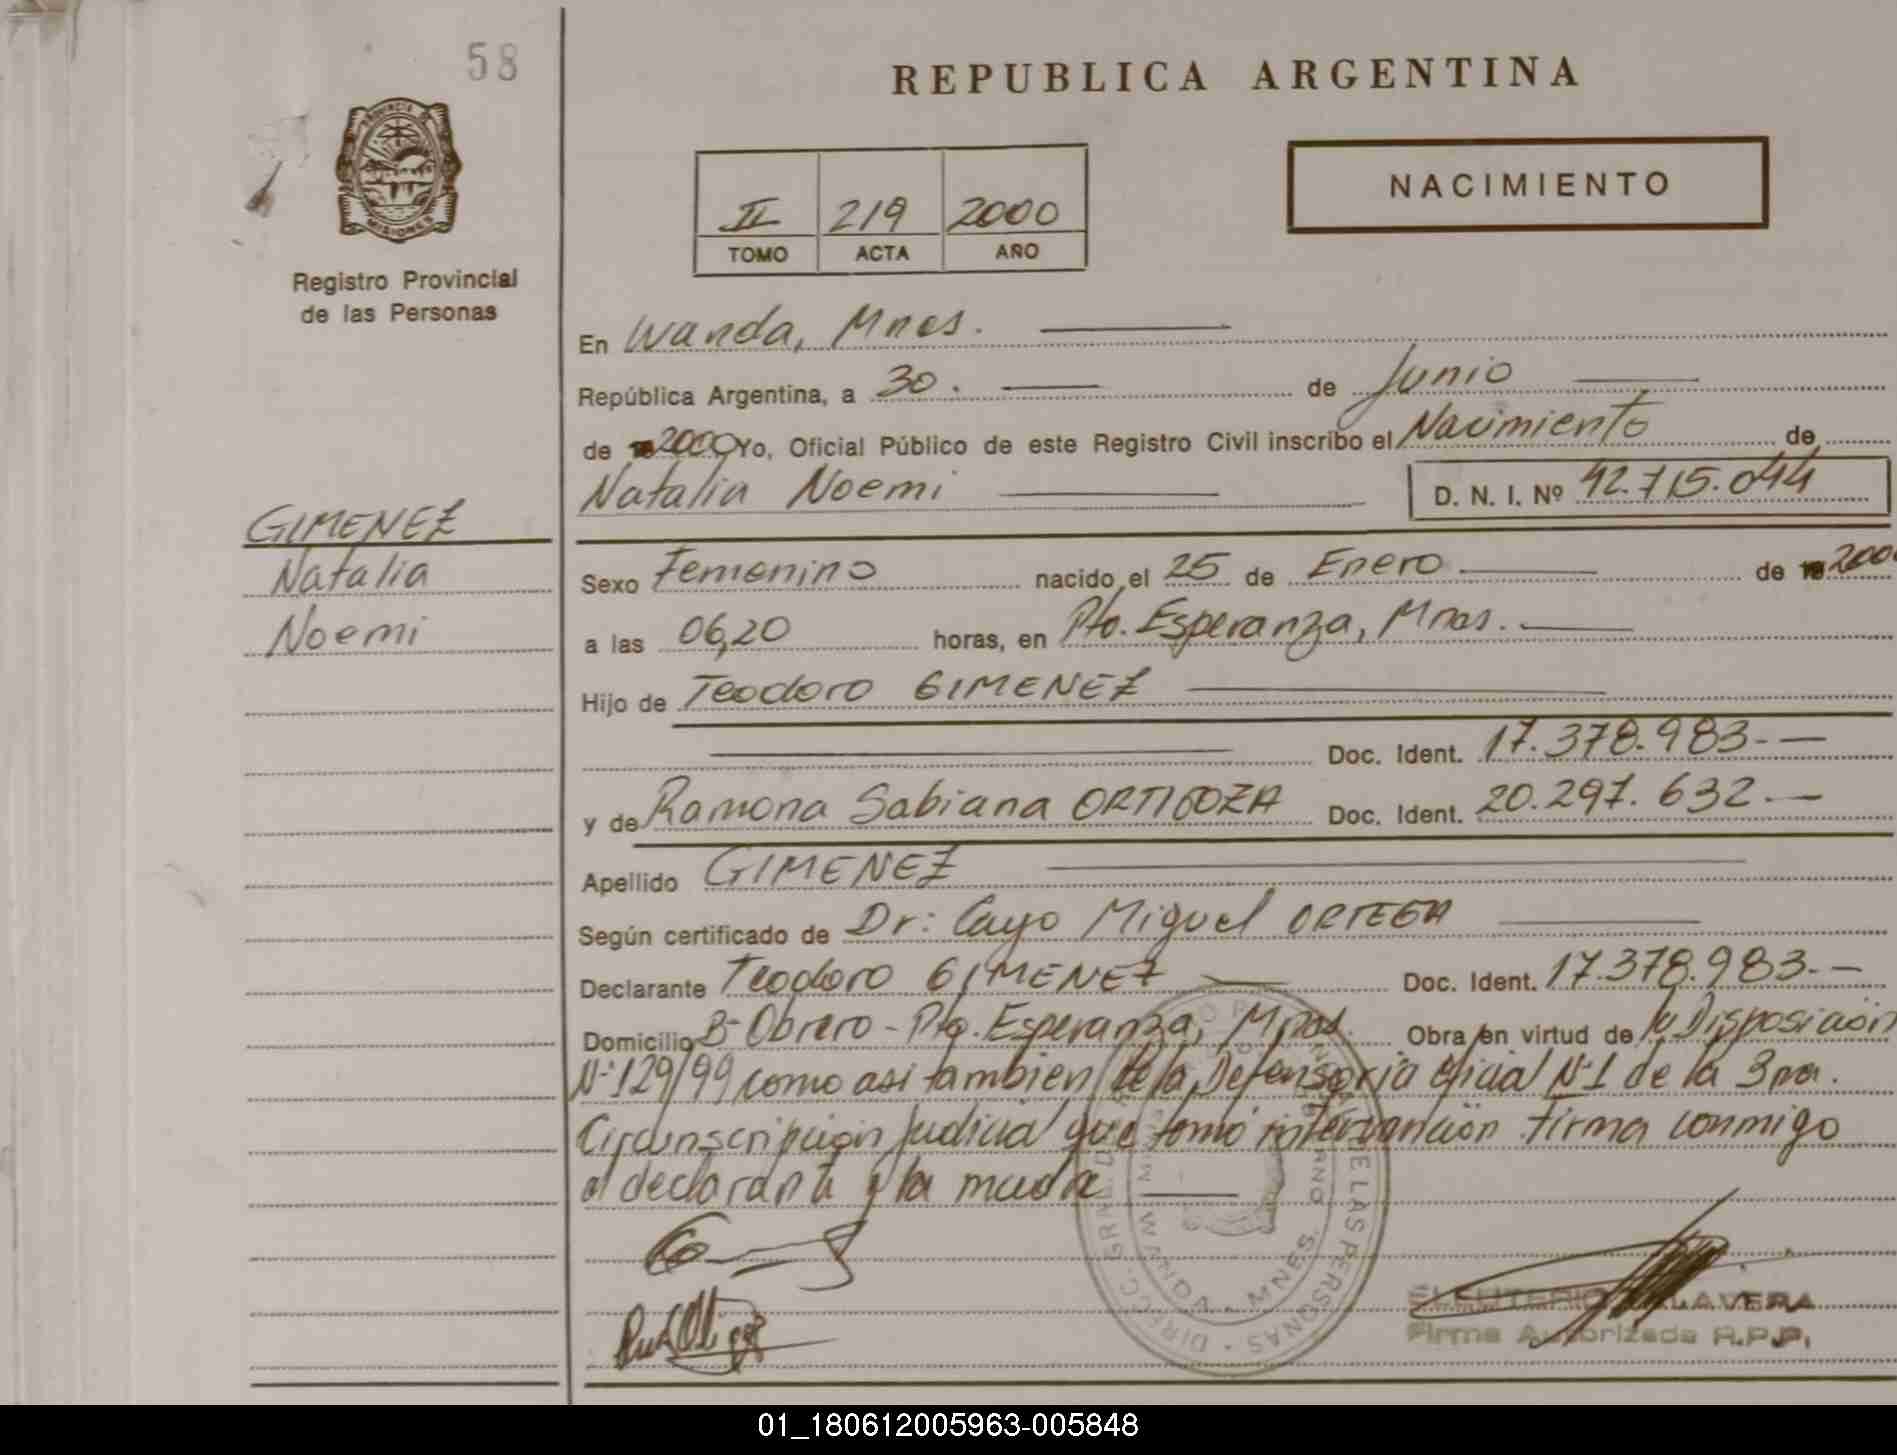 58
REPUBLICA ARGENTINA
PROVINCIA DE
MISIONES
Registro Provincial
de las Personas
NACIMIENTO
II 219 2000
TOMO ACTA AÑO
En Wanda, Mnes.
República Argentina, a 30. de Junio
de 2000 Yo, Oficial Público de este Registro Civil inscribo el Nacimiento de
Natalia Noemi D. N. I. Nº 42.715.044
GIMENEZ
Natalia
Noemi
Sexo Femenino nacido el 25 de Enero de 2000
a las 06,20 horas, en Pto. Esperanza, Mnes.
Hijo de Teodoro GIMENEZ
Doc. Ident. 17.378.983.-
y de Ramona Sabiana ORTIGOZA Doc. Ident. 20.297.632.-
Apellido GIMENEZ
Según certificado de Dr: Cayo Miguel ORTEGA
Declarante Teodoro GIMENEZ Doc. Ident. 17.378.983.-
Domicilio Bº Obrero - Pto. Esperanza, Mnes. Obra en virtud de la Disposición
Nº 129/99 como asi tambien de la Defensoria Oficial Nº 1 de la 3ra.
Circunscripción Judicial que tomó intervención firma conmigo
el declarante y la madre
ELEUTERIO TALAVERA
Firma Autorizada R.P.P.
01_180612005963-005848